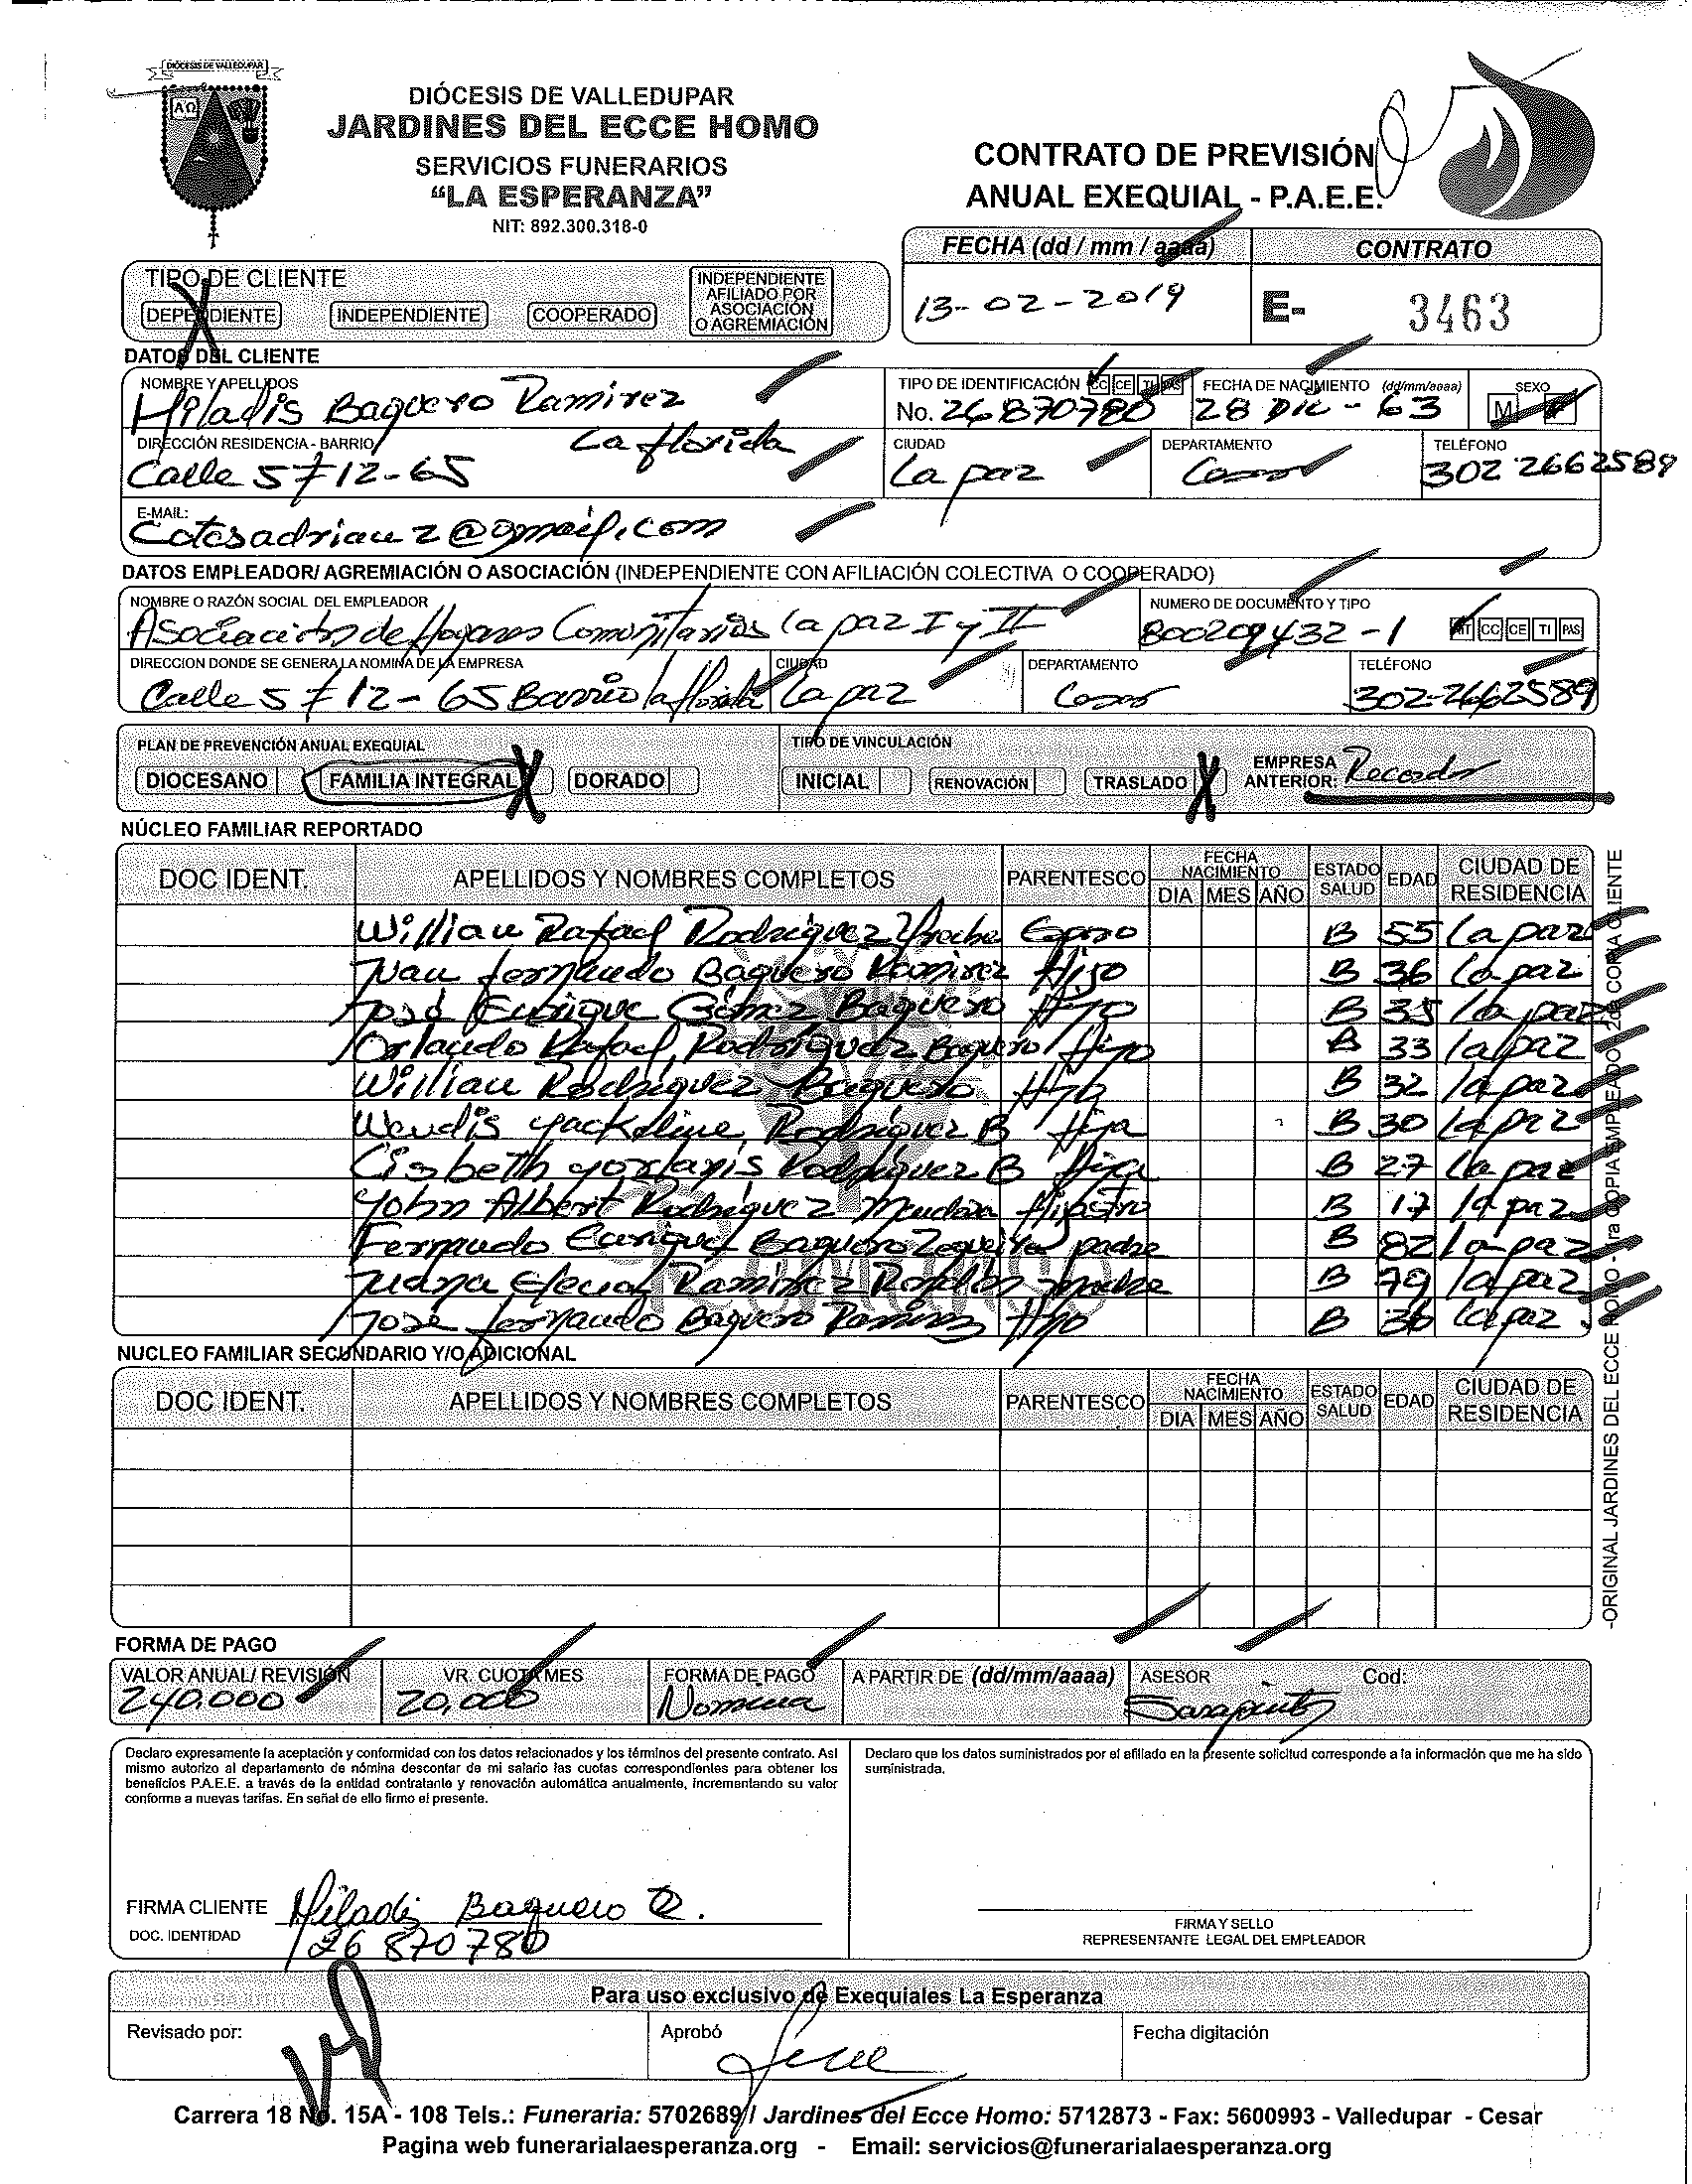 DIÓCESIS DE VALLEDUPAR
DIÓCESIS DE VALLEDUPAR
JARDINES DEL ECCE HOMO
SERVICIOS FUNERARIOS
“LA ESPERANZA”
NIT: 892.300.318-0
CONTRATO DE PREVISIÓN
ANUAL EXEQUIAL - P.A.E.E.
FECHA (dd / mm / aaaa) CONTRATO
13-02-2019 E- 3463
TIPO DE CLIENTE
DEPENDIENTE INDEPENDIENTE COOPERADO INDEPENDIENTE AFILIADO POR ASOCIACIÓN O AGREMIACIÓN
DATOS DEL CLIENTE
NOMBRE Y APELLIDOS TIPO DE IDENTIFICACIÓN CC CE TI PAS FECHA DE NACIMIENTO (dd/mm/aaaa) SEXO
Hiladis Baquero Ramirez No. 26870780 28 Dic - 63 M F
DIRECCIÓN RESIDENCIA - BARRIO CIUDAD DEPARTAMENTO TELÉFONO
Calle 5 # 12-65 La florida La paz Cesar 302 2662589
E-MAIL:
Cotesadrian2@gmail.com
DATOS EMPLEADOR/ AGREMIACIÓN O ASOCIACIÓN (INDEPENDIENTE CON AFILIACIÓN COLECTIVA O COOPERADO)
NOMBRE O RAZÓN SOCIAL DEL EMPLEADOR NUMERO DE DOCUMENTO Y TIPO
Asociación de Hogares Comunitarios La paz I y II 800209432-1 NIT CC CE TI PAS
DIRECCION DONDE SE GENERA LA NOMINA DE LA EMPRESA CIUDAD DEPARTAMENTO TELÉFONO
Calle 5 # 12-65 Barrio la florida La paz Cesar 302-2662589
PLAN DE PREVENCIÓN ANUAL EXEQUIAL TIPO DE VINCULACIÓN
DIOCESANO FAMILIA INTEGRAL X DORADO INICIAL RENOVACIÓN TRASLADO X EMPRESA ANTERIOR: Recordar
NÚCLEO FAMILIAR REPORTADO
DOC IDENT. APELLIDOS Y NOMBRES COMPLETOS PARENTESCO FECHA NACIMIENTO DIA MES AÑO ESTADO SALUD EDAD CIUDAD DE RESIDENCIA
Willian Rafael Rodriguez Esposo B 55 La paz
Juan fernando Baquero Ramirez Hijo B 36 La paz
José Enrique Gómez Baquero Hijo B 35 La paz
Orlando Rafael Rodríguez Baquero Hijo B 33 La paz
Willian Rodríguez Baquero Hijo B 32 La paz
Wendis Yackeline Rodríguez B Hija B 30 La paz
Lisbeth Yorlanis Rodríguez B Hija B 27 La paz
Yohn Albert Rodríguez Mendoza Hijastro B 17 La paz
Fernando Enrique Baquero Zequeira padre B 82 La paz
Juana Elena Ramirez Rondón madre B 79 La paz
Jose fernando Baquero Ramirez Hijo B 36 La paz
NUCLEO FAMILIAR SECUNDARIO Y/O ADICIONAL
DOC IDENT. APELLIDOS Y NOMBRES COMPLETOS PARENTESCO FECHA NACIMIENTO DIA MES AÑO ESTADO SALUD EDAD CIUDAD DE RESIDENCIA
FORMA DE PAGO
VALOR ANUAL/ REVISIÓN VR. CUOTA MES FORMA DE PAGO A PARTIR DE (dd/mm/aaaa) ASESOR Cod:
240.000 20,000 Nomina
Declaro expresamente la aceptación y conformidad con los datos relacionados y los términos del presente contrato. Así
mismo autorizo al departamento de nómina descontar de mi salario las cuotas correspondientes para obtener los
beneficios P.A.E.E. a través de la entidad contratante y renovación automática anualmente, incrementando su valor
conforme a nuevas tarifas. En señal de ello firmo el presente.
Declaro que los datos suministrados por el afiliado en la presente solicitud corresponde a la información que me ha sido
suministrada.
FIRMA CLIENTE Hiladis Baquero R.
DOC. IDENTIDAD 26870780
FIRMA Y SELLO
REPRESENTANTE LEGAL DEL EMPLEADOR
Para uso exclusivo de Exequiales La Esperanza
Revisado por: Aprobó Fecha digitación
Carrera 18 No. 15A - 108 Tels.: Funeraria: 5702689 / Jardines del Ecce Homo: 5712873 - Fax: 5600993 - Valledupar - Cesar
Pagina web funerarialaesperanza.org - Email: servicios@funerarialaesperanza.org